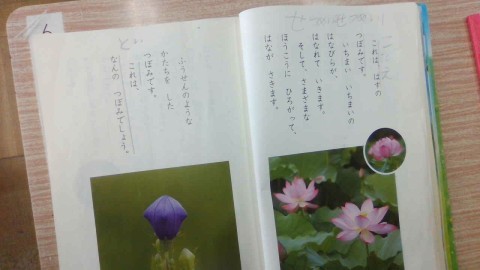 これは、はすの
つぼみです。
いちまい　いちまいの
はなびらが
はなれて　いきます。
そして、さまざまな
ほうこうに　ひろがって、
はなが　さきます。
ふうせんのような
かたちを　した
つぼみです。
これは、
なんの　つぼみでしょう。